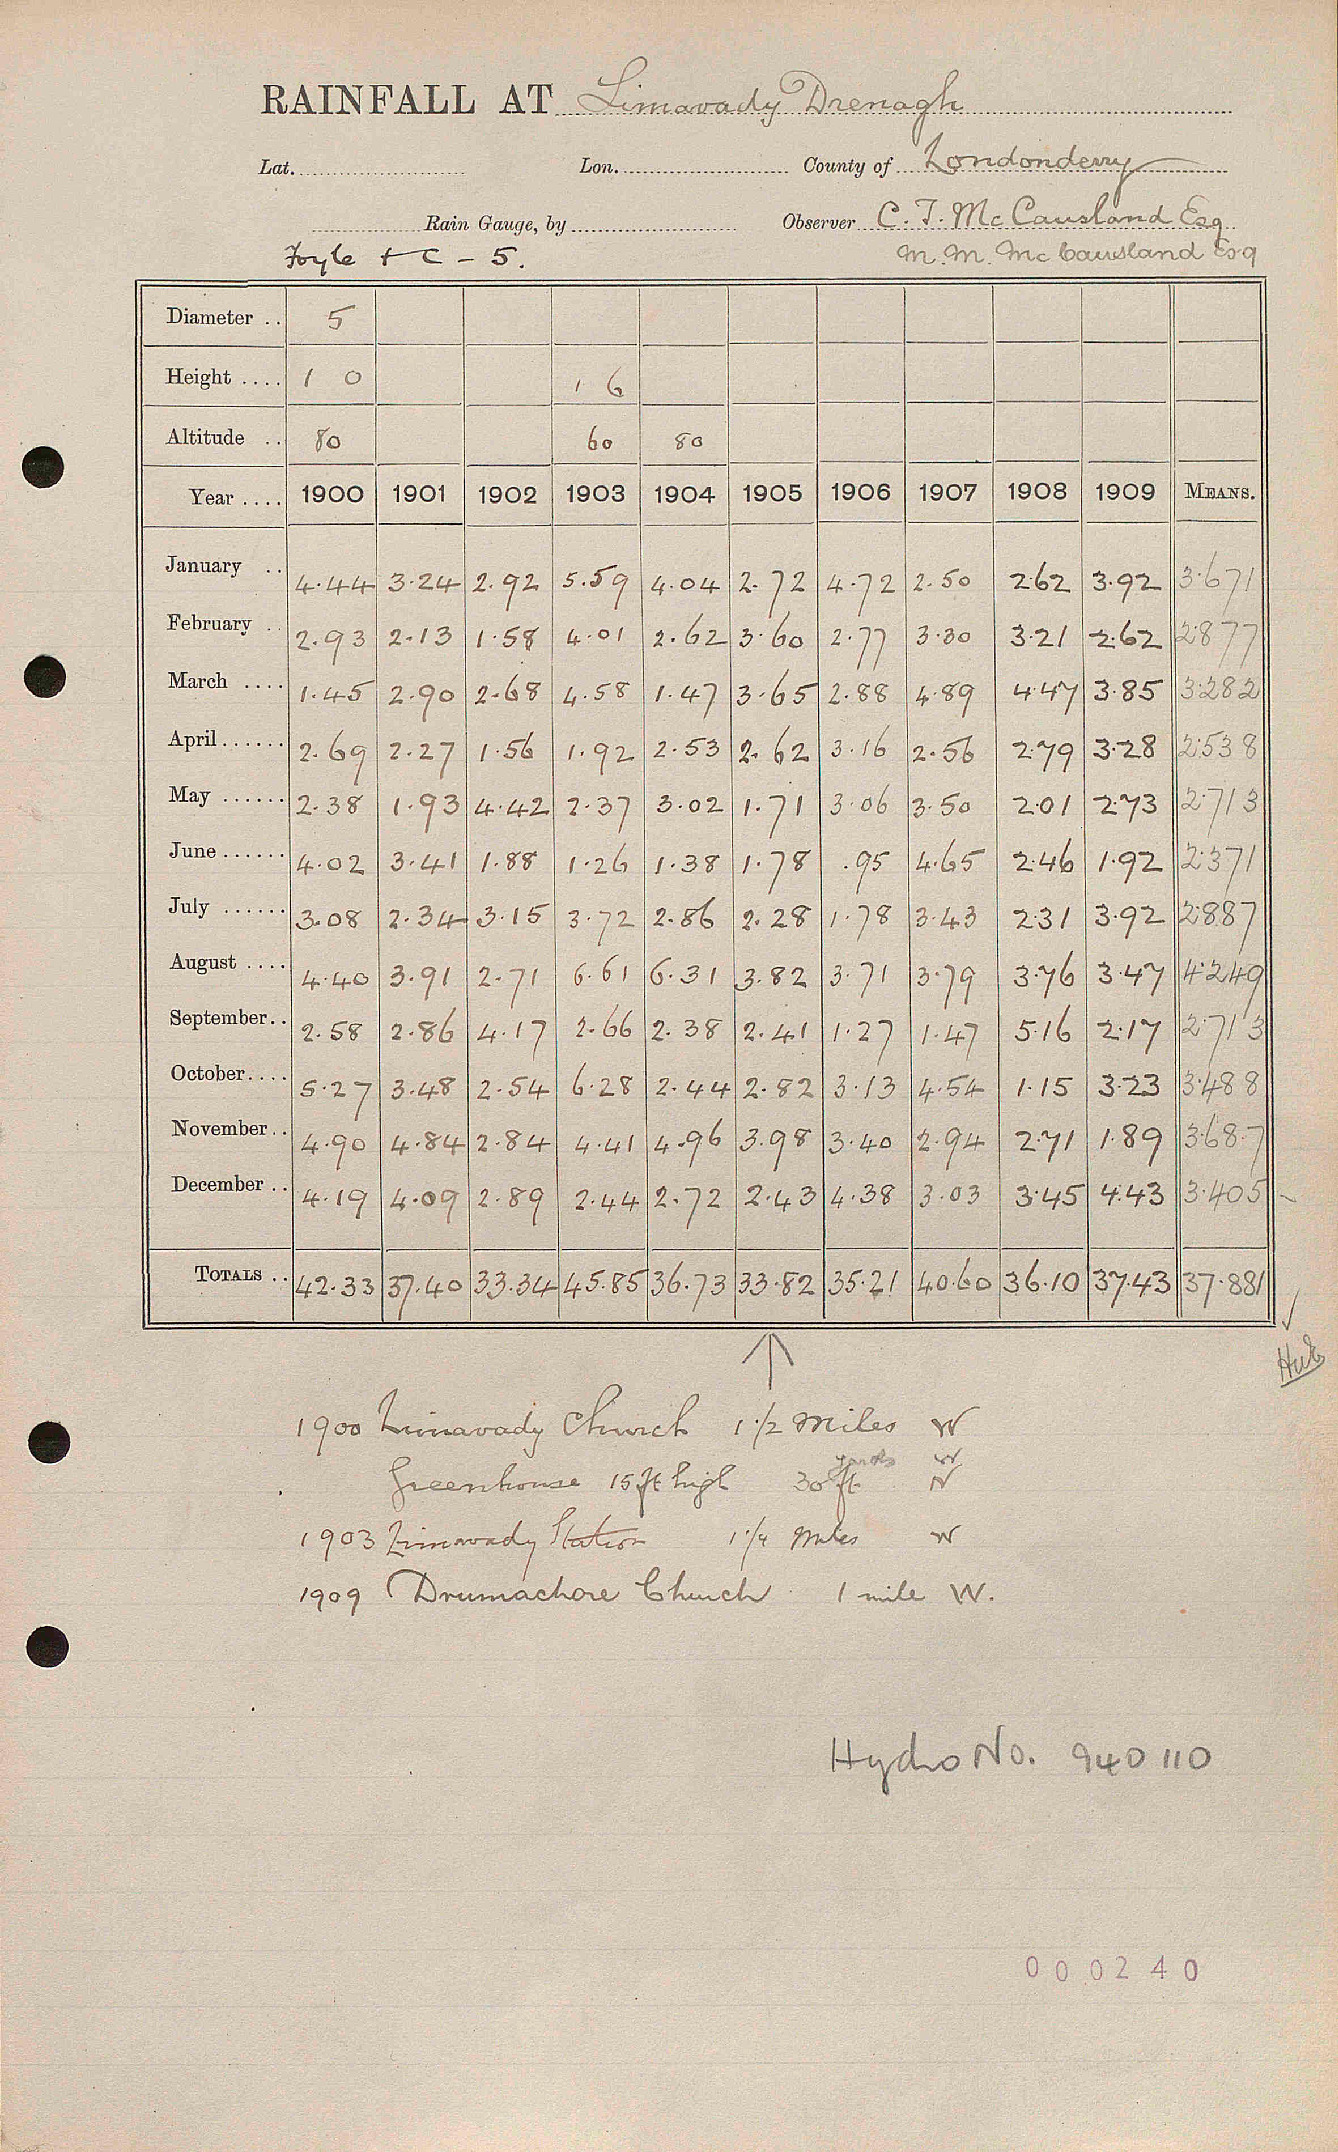 RAINFALL AT Limavady Drenagh
Lat. Lon. County of Londonderry
Rain Gauge, by Observer C. T. McCausland Esq
Foyle + C - 5. M. M. McCausland Esq
Diameter .. 5
Height .... 1 0 1 6
Altitude .. 80 60 80
Year .... 1900 1901 1902 1903 1904 1905 1906 1907 1908 1909 MEANS.
January .. 4.44 3.24 2.92 5.59 4.04 2.72 4.72 2.50 2.62 3.92 3.671
February .. 2.93 2.13 1.58 4.01 2.62 3.60 2.77 3.30 3.21 2.62 2.877
March .... 1.45 2.90 2.68 4.58 1.47 3.65 2.88 4.89 4.47 3.85 3.282
April ...... 2.69 2.27 1.56 1.92 2.53 2.62 3.16 2.56 2.79 3.28 2.538
May ...... 2.38 1.93 4.42 2.37 3.02 1.71 3.06 3.50 2.01 2.73 2.713
June ...... 4.02 3.41 1.88 1.26 1.38 1.78 .95 4.65 2.46 1.92 2.371
July ...... 3.08 2.34 3.15 3.72 2.86 2.28 1.78 3.43 2.31 3.92 2.887
August .... 4.40 3.91 2.71 6.61 6.31 3.82 3.71 3.79 3.76 3.47 4.249
September.. 2.58 2.86 4.17 2.66 2.38 2.41 1.27 1.47 5.16 2.17 2.713
October.... 5.27 3.48 2.54 6.28 2.44 2.82 3.13 4.54 1.15 3.23 3.488
November.. 4.90 4.84 2.84 4.41 4.96 3.98 3.40 2.94 2.71 1.89 3.687
December .. 4.19 4.09 2.89 2.44 2.72 2.43 4.38 3.03 3.45 4.43 3.405
TOTALS .. 42.33 37.40 33.34 45.85 36.73 33.82 35.21 40.60 36.10 37.43 37.881
1900 Limavady Church 1 1/2 Miles W
yards W
Greenhouse 15 ft high 30 ft N
1903 Limavady Station 1 1/4 Miles W
1909 Drumachose Church 1 mile W.
Hydro No. 940110
000240